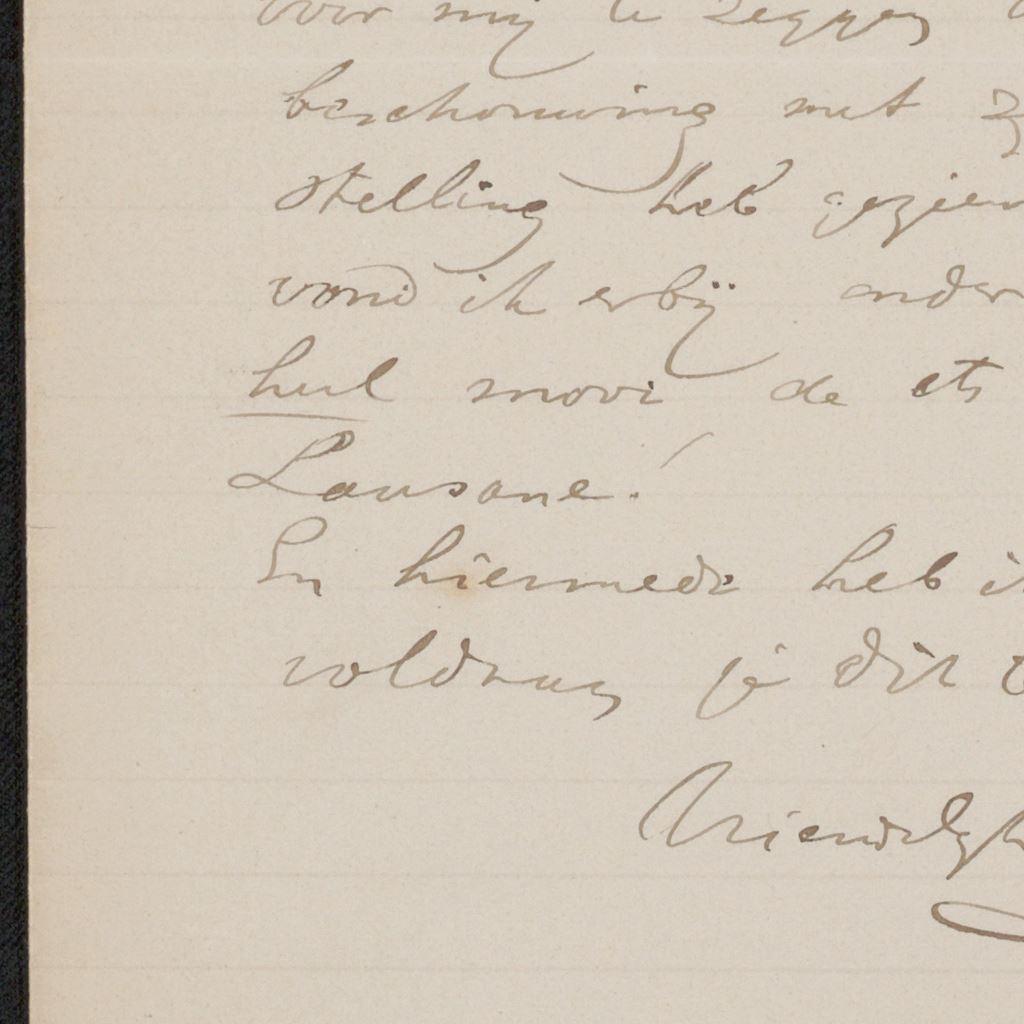 voor mij te zeggen
beschouwing met
stelling heb gezien
vond ik erbij ander
heel mooi de ets
Lausane!
En hiermede heb ik
voldaan je dit
Vriendelijk